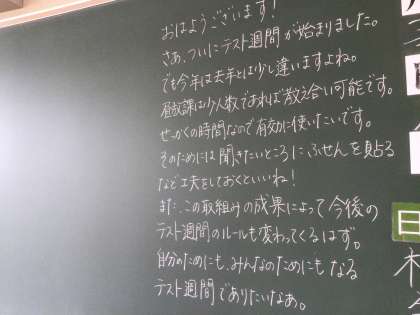 おはようございます!
さあ、ついにテスト週間が始まりました。
でも今年は去年とは少し違いますよね。
昼放課は少人数であれば教え合い可能です。
せっかくの時間なので有効に使いたいです。
そのためには聞きたいところにふせんを貼る
など工夫をしておくといいね!
また、この取組みの成果によって今後の
テスト週間のルールも変わってくるはず。
自分のためにも、みんなのためにもなる
テスト週間でありたいなあ。
日